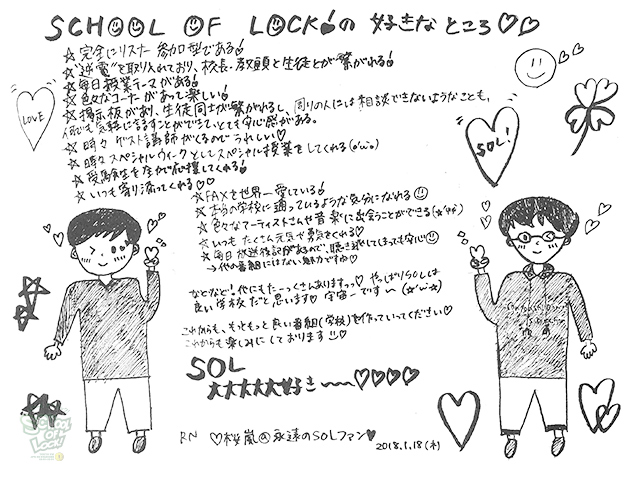 SCHOOL OF LOCK!の 好きな ところ♡♡
☆ 完全にリスナー参加型である!
☆ "逆電"を取り入れており、校長・教頭と生徒とが繋がれる!
☆ 毎日授業テーマがある!
☆ 色々なコーナーがあって楽しい!
☆ 掲示板があり、生徒同士が繋がれるし、周りの人には相談できないようなことも、
何でも気軽に話すことができてとても安心感がある。
☆ 時々ゲスト講師がくるのでうれしい♡
☆ 時々スペシャルウィークとしてスペシャル授業をしてくれる(o'ω'o)
☆ 受験生を全力応援してくれる!
☆ いつも寄り添ってくれる♡♡
☆ FAXを世界一愛している!
☆ もう1つの学校に通っているような気分になれる
☆ 色々なアーティストさんや音楽に出会うことができる
☆ いつもたくさん元気や勇気をくれる!
☆ 毎日放送後記があるので、聴き逃してしまっても安心
→ 他の番組にはない魅力ですね♡
などなど!他にもたーっくさんありますっっ♡ やっぱりSOLは
良い学校だと思います♡ 宇宙一です〜(☆'ω'☆)
これからも、もっともっと良い番組(学校)を作っていってください♡
これからも楽しみにしております!!♡
SOL
大大大大大好き〜〜♡♡♡♡
RN ♡桜嵐@永遠のSOLファン♥
2018.1.18(木)
LOVE
SOL!
School of Lock!